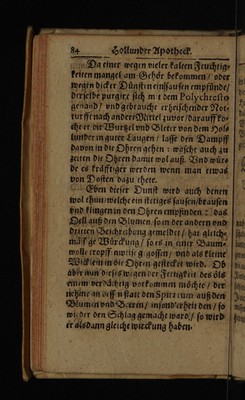 84 Hollunder Apotheck.
Da einer wegen vieler kalten Feuchtig-
keiten mangel am Gehör bekommen / oder
wegen dicker Dünsten einsausen empfünde/
derselbe purgire sich mit dem Polychresto
genand/ und gebrauche erheischender Not-
turfft nach andere Mittel zuvor/ darauff ko-
chet er die Wurtzel und Bletter von dem Hol-
lunder in guter Laugen / lasse den Dampff
davon in die Ohren gehen : wasche auch zu
zeiten die Ohren damit wol auß. Und wür-
de es kräfftiger werden wenn man etwas
von Dosten dazu thete.
Eben dieser Dunst wird auch denen
wol thun / welche ein stetiges sausen/brausen
und klingen in den Ohren empfinden : das
Oell auß den Blumen, so in der andern und
dritten Beschreibung gemeldet / hat gleich-
mässige Würckung / so es in einer Baum-
wolle tropff nweise gossen / und als kleine
Wicklein in die Ohren gestecket wird. Ob
aber nun dieses wegen der Fettigkeit des öls
einem verdächtig vorkommen möchte / der
nehme an dessen statt den Spiritum auß den
Blumen und Beeren / insonderheit den / so
wieder den Schlag gemacht word / so wird
er alsdann gleiche wirckung haben.